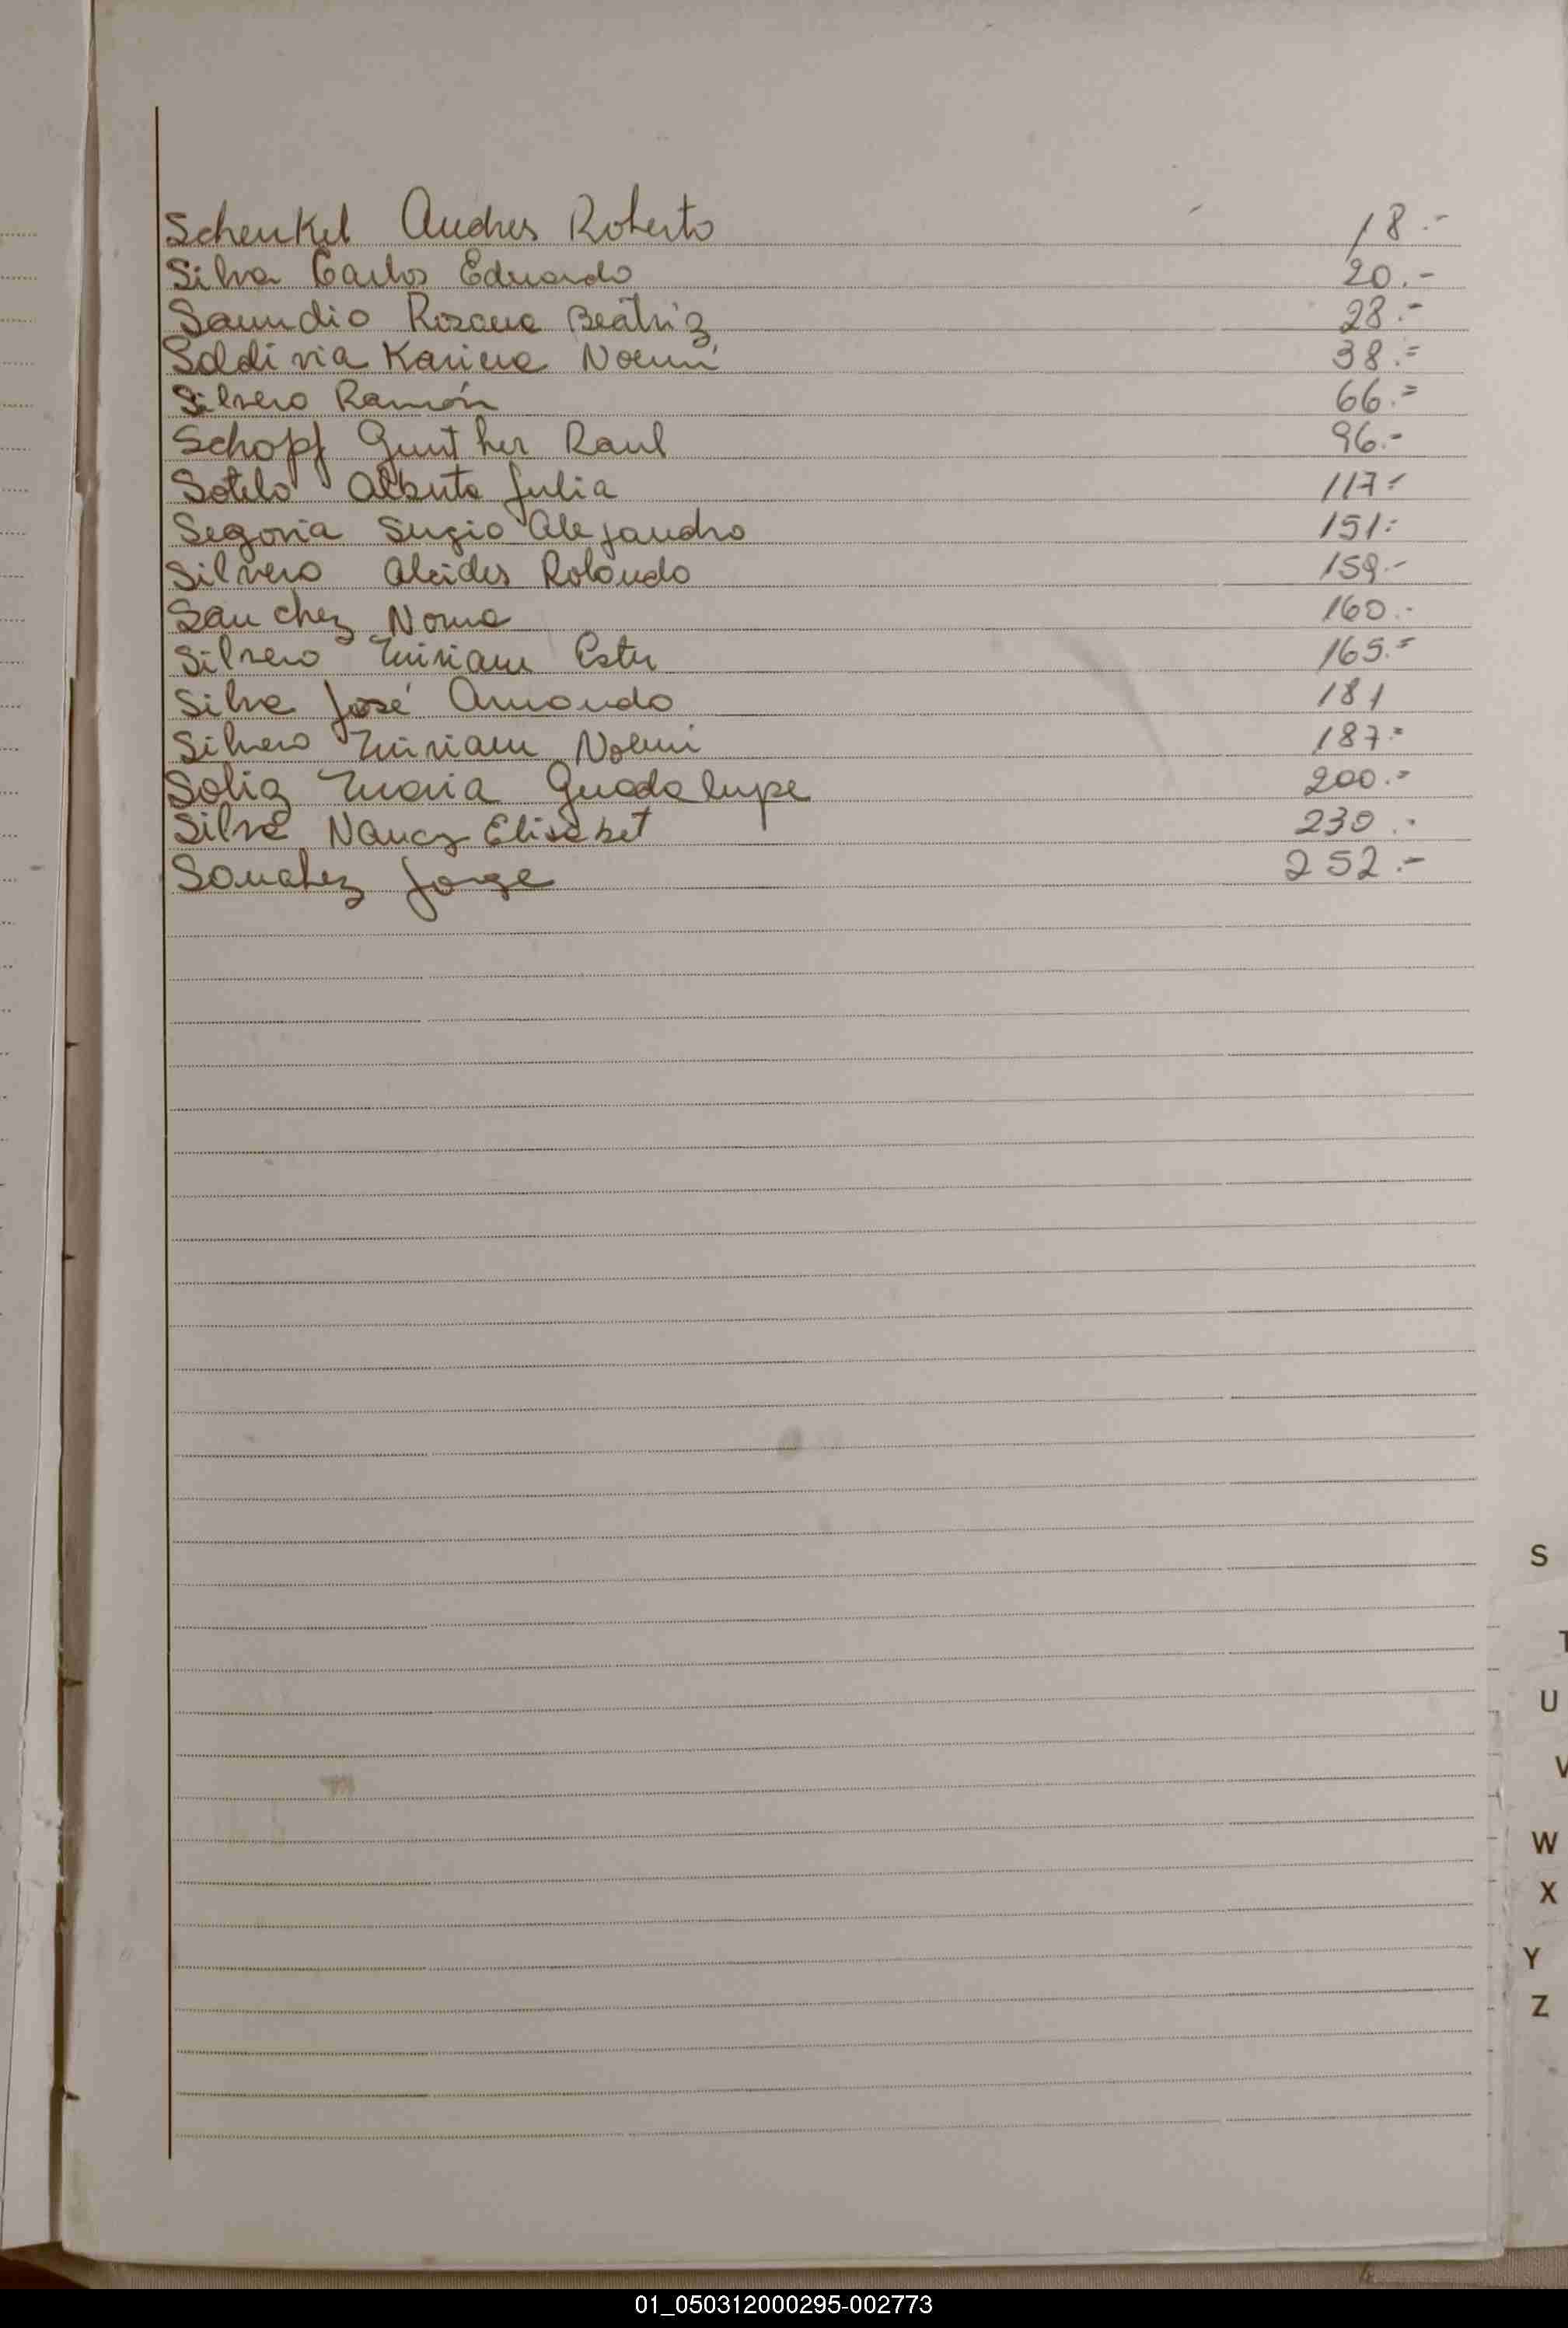 Schenkel Andres Roberto 18.-
Silva Carlos Eduardo 20.-
Samudio Rosana Beatriz 28.-
Saldivia Karina Noemí 38.=
Silvero Ramón 66.=
Schopf Gunther Raul 96.-
Sotelo Alberto Julia 117.-
Segovia Sergio Alejandro 151.-
Silvero Alcides Rolando 159.-
Sanchez Norma 160.-
Silvero Miriam Ester 165.=
Silva José Armando 181
Silvero Miriam Noemi 187.=
Soliz Maria Guadalupe 200.-
Silva Nancy Elisabet 230.-
Sanchez Jorge 252.-
S
T
U
V
W
X
Y
Z
01_050312000295-002773